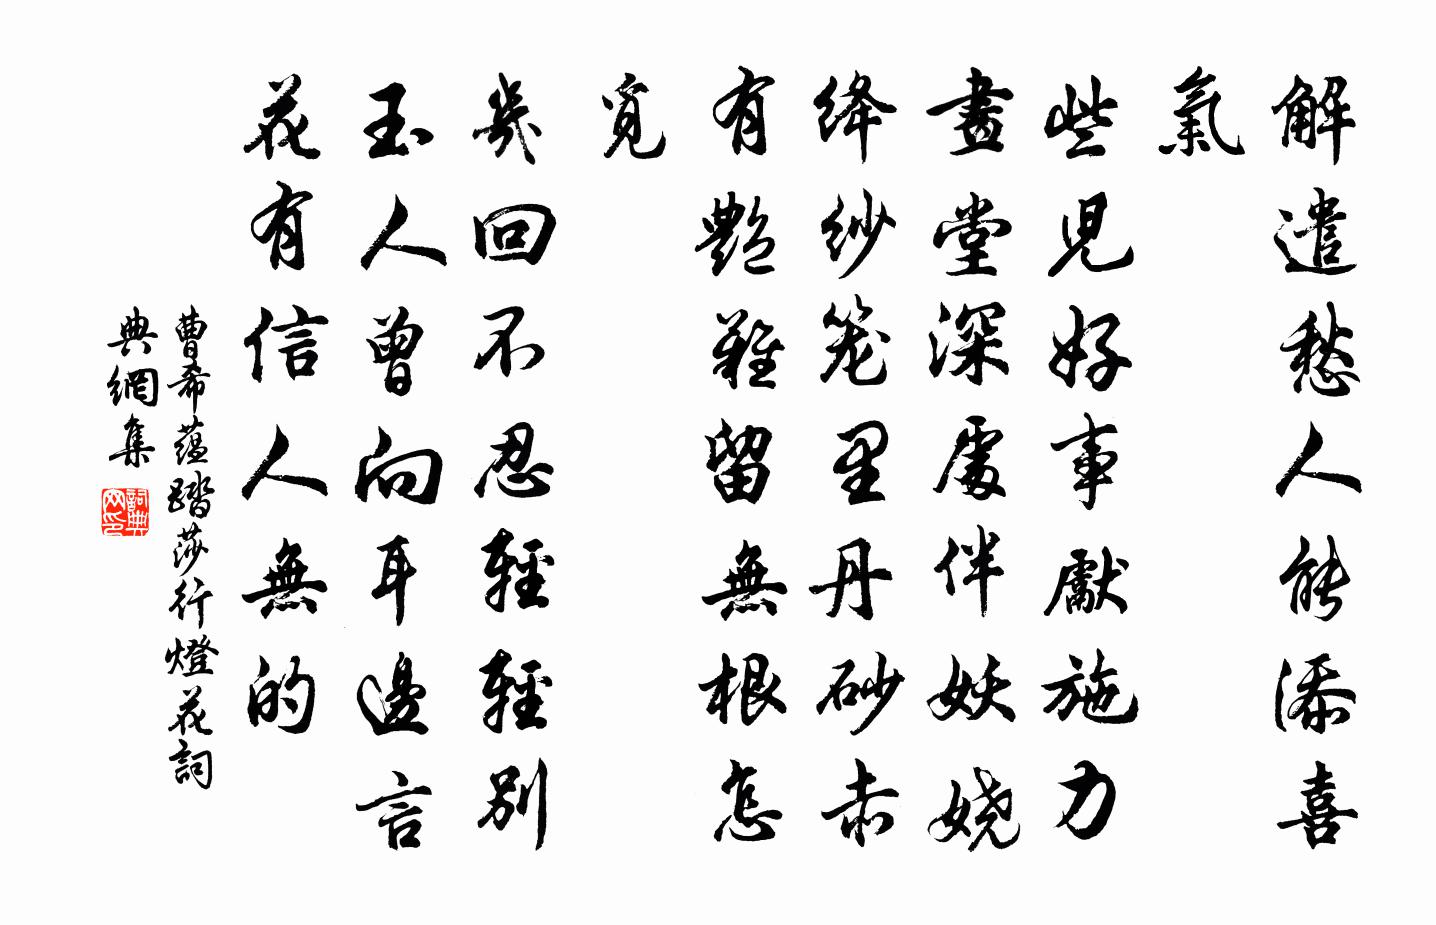 解遣愁人能添喜
氣
些児好事獻施力
畫堂深處伴妖娆
絳紗笼里丹砂赤
有艷難留無根怎
覓
幾回不忍輕輕別
玉人曾向耳邊言
花有信人無的
曹希蕴踏莎行燈花詞
典網集
詞典网印